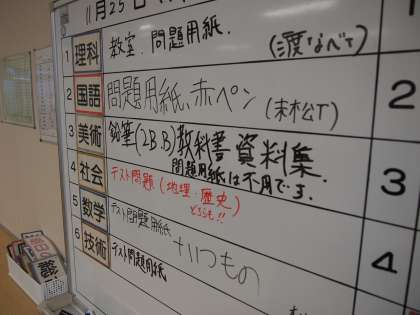 11月25日
1 理科 教室.問題用紙. (渡なべT) 1
2 国語 問題用紙、赤ペン (末松T) 2
3 美術 鉛筆(2B.B)教科書 資料集 3
問題用紙は不用です.
4 社会 テスト問題(地理・歴史) 4
どちらも!!
5 数学 テスト問題用紙 +いつもの
6 技術 テスト問題用紙